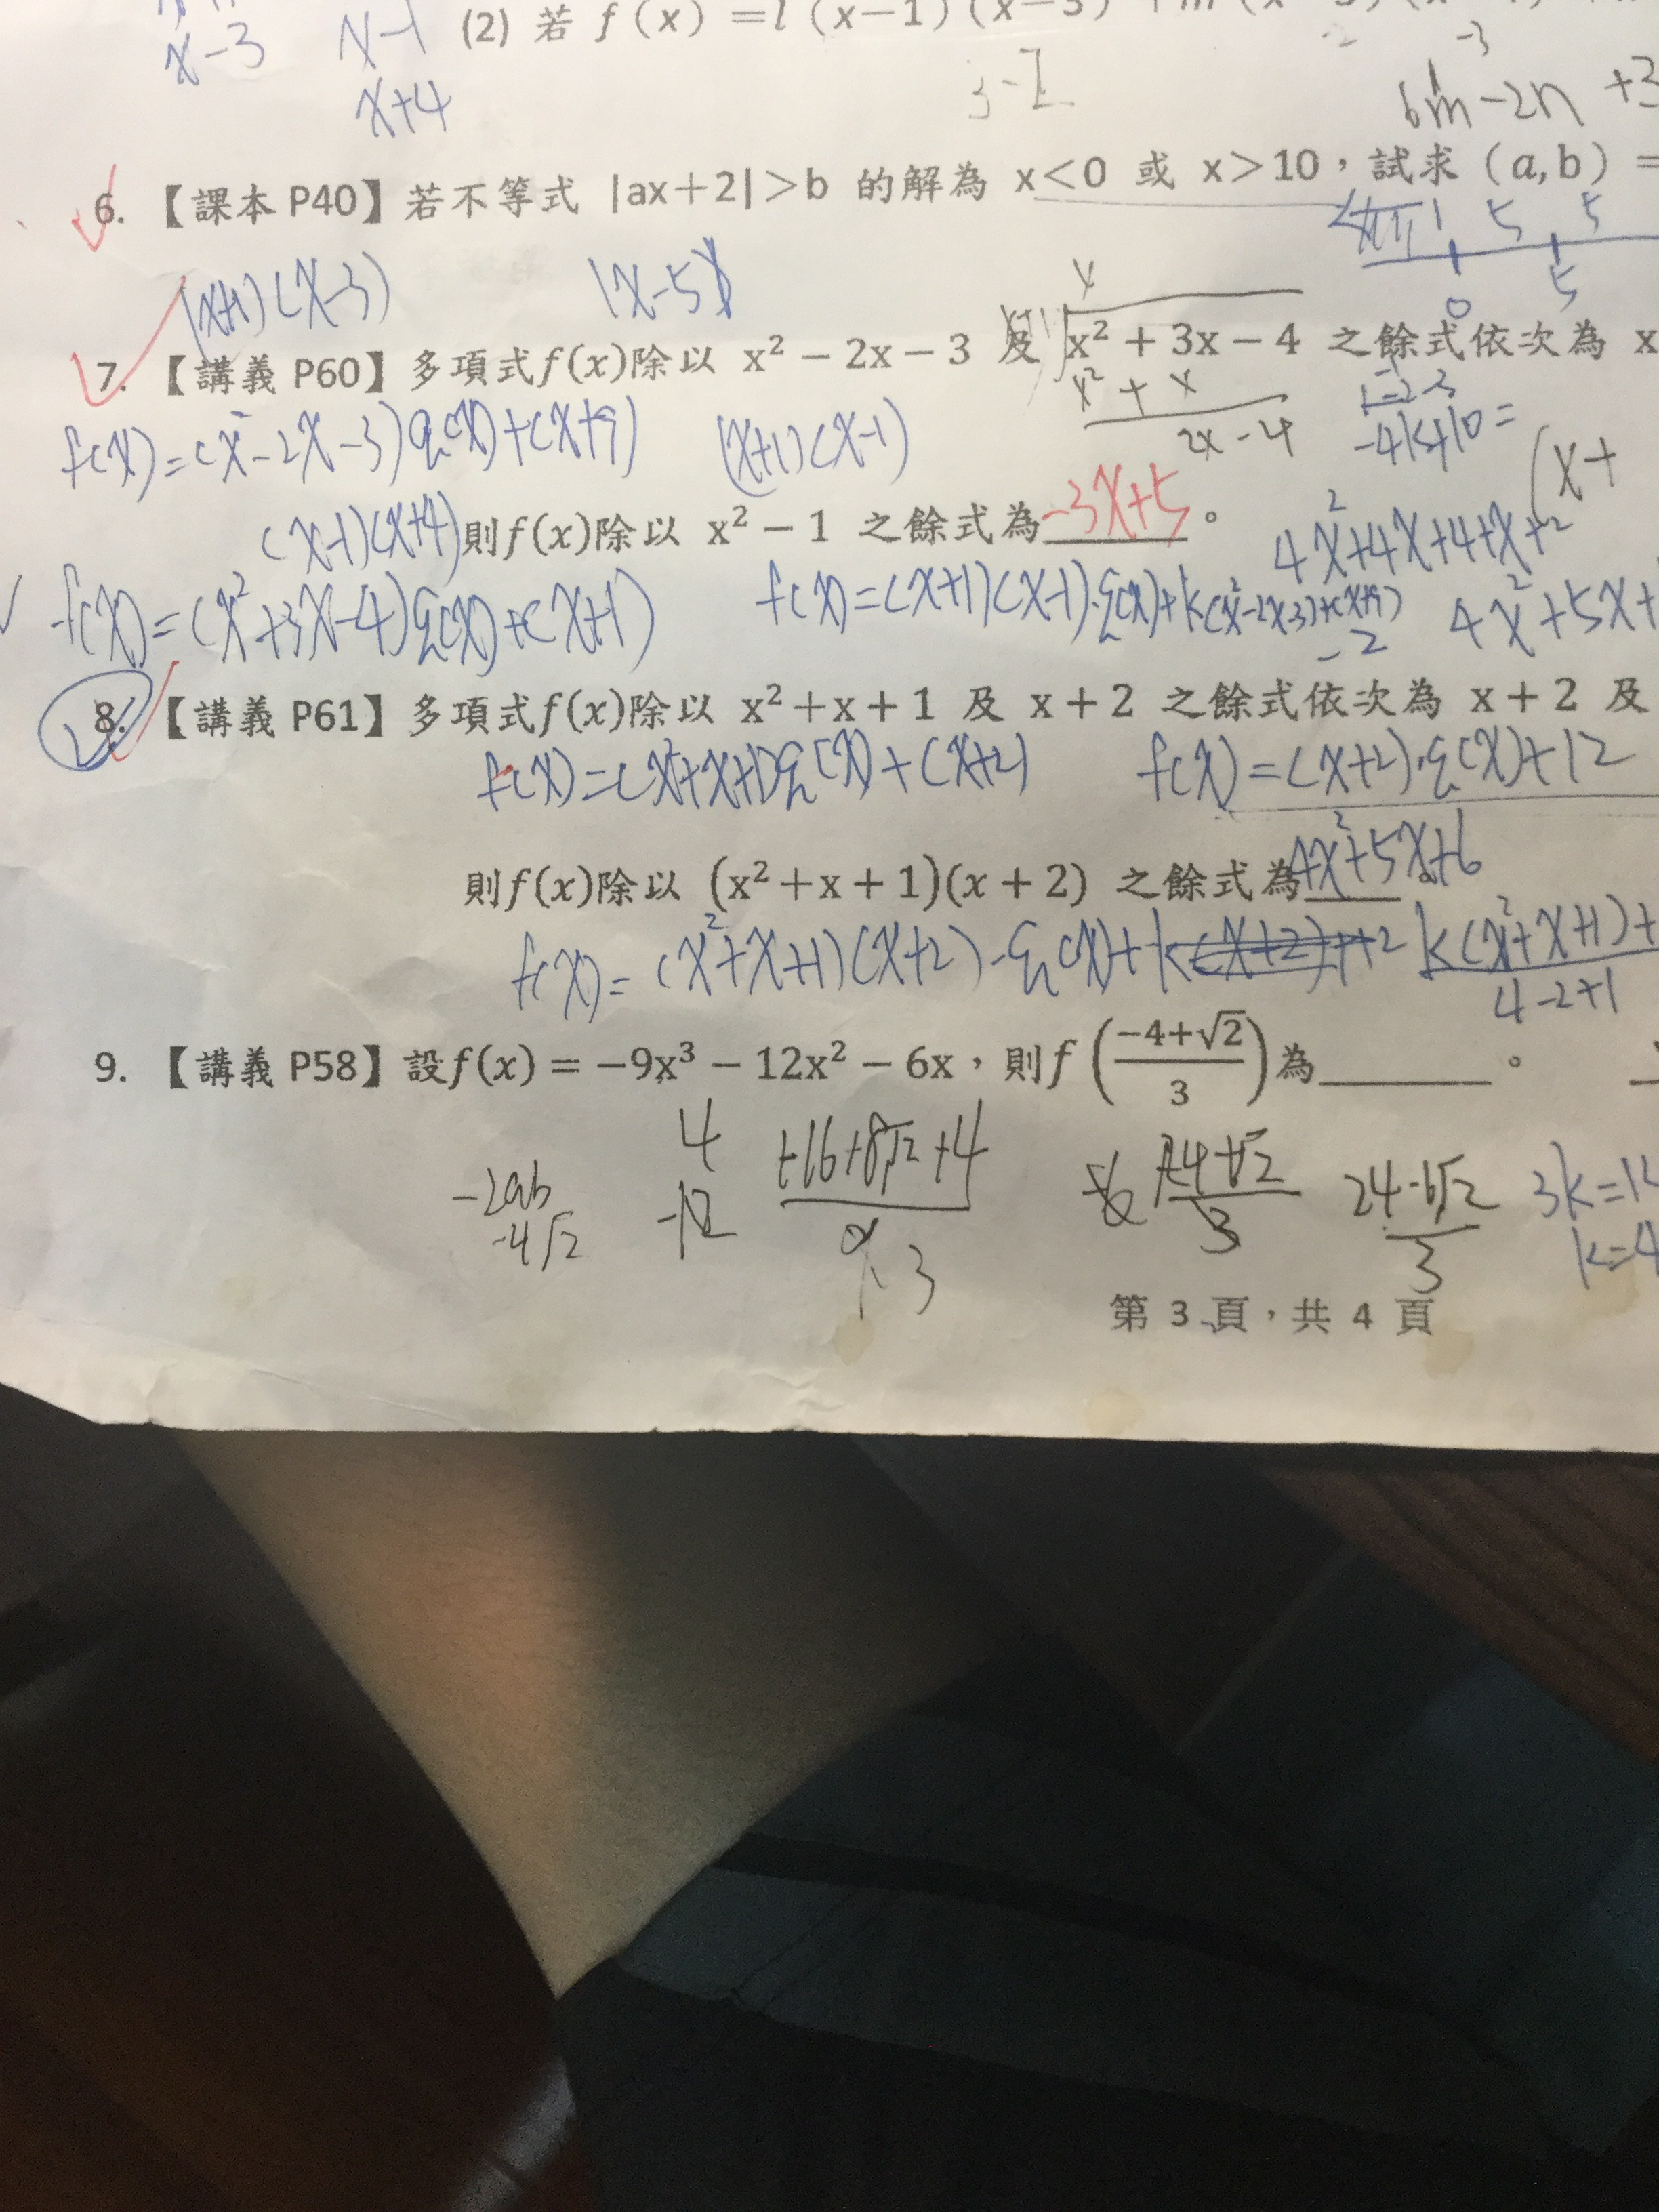 x-3 x-1 (2) 若 f(x)=l(x-1)(x-3)
x+4
3-2
-3
6m-2n+3
6. 【課本 P40】若不等式 |ax+2|>b 的解為 x<0 或 x>10,試求(a,b)=
5 5
0 5
(x+1)(x-3) |x-5|
7. 【講義 P60】多項式f(x)除以 x²-2x-3 及 x²+3x-4 之餘式依次為 x
x
x²+x
2x-4
-4k+10=
f(x)=(x²-2x-3)q(x)+(x+9) (x+1)(x-1)
(x+
(x-1)(x+4) 則f(x)除以 x²-1 之餘式為-3x+5。
4x²+4x+4+x+2
f(x)=(x²+3x-4)q(x)+(x+1) f(x)=(x+1)(x-1)·q(x)+k(x²-2x-3)+(x+9) 4x²+5x+
-2
8. 【講義 P61】多項式f(x)除以 x²+x+1 及 x+2 之餘式依次為 x+2 及
f(x)=(x²+x+1)q(x)+(x+2) f(x)=(x+2)·q(x)+12
則f(x)除以 (x²+x+1)(x+2) 之餘式為4x²+5x+6
f(x)=(x²+x+1)(x+2)·q(x)+k(x+2)+12 k(x²+x+1)+
4-2+1
9. 【講義 P58】設f(x)=-9x³-12x²-6x,則f((-4+√2)/3)為______。
-2ab
-4√2
4
-12
+16+8√2+4
3
-4+√2
3
24-6√2
3
3k=12
k=4
第 3 頁,共 4 頁